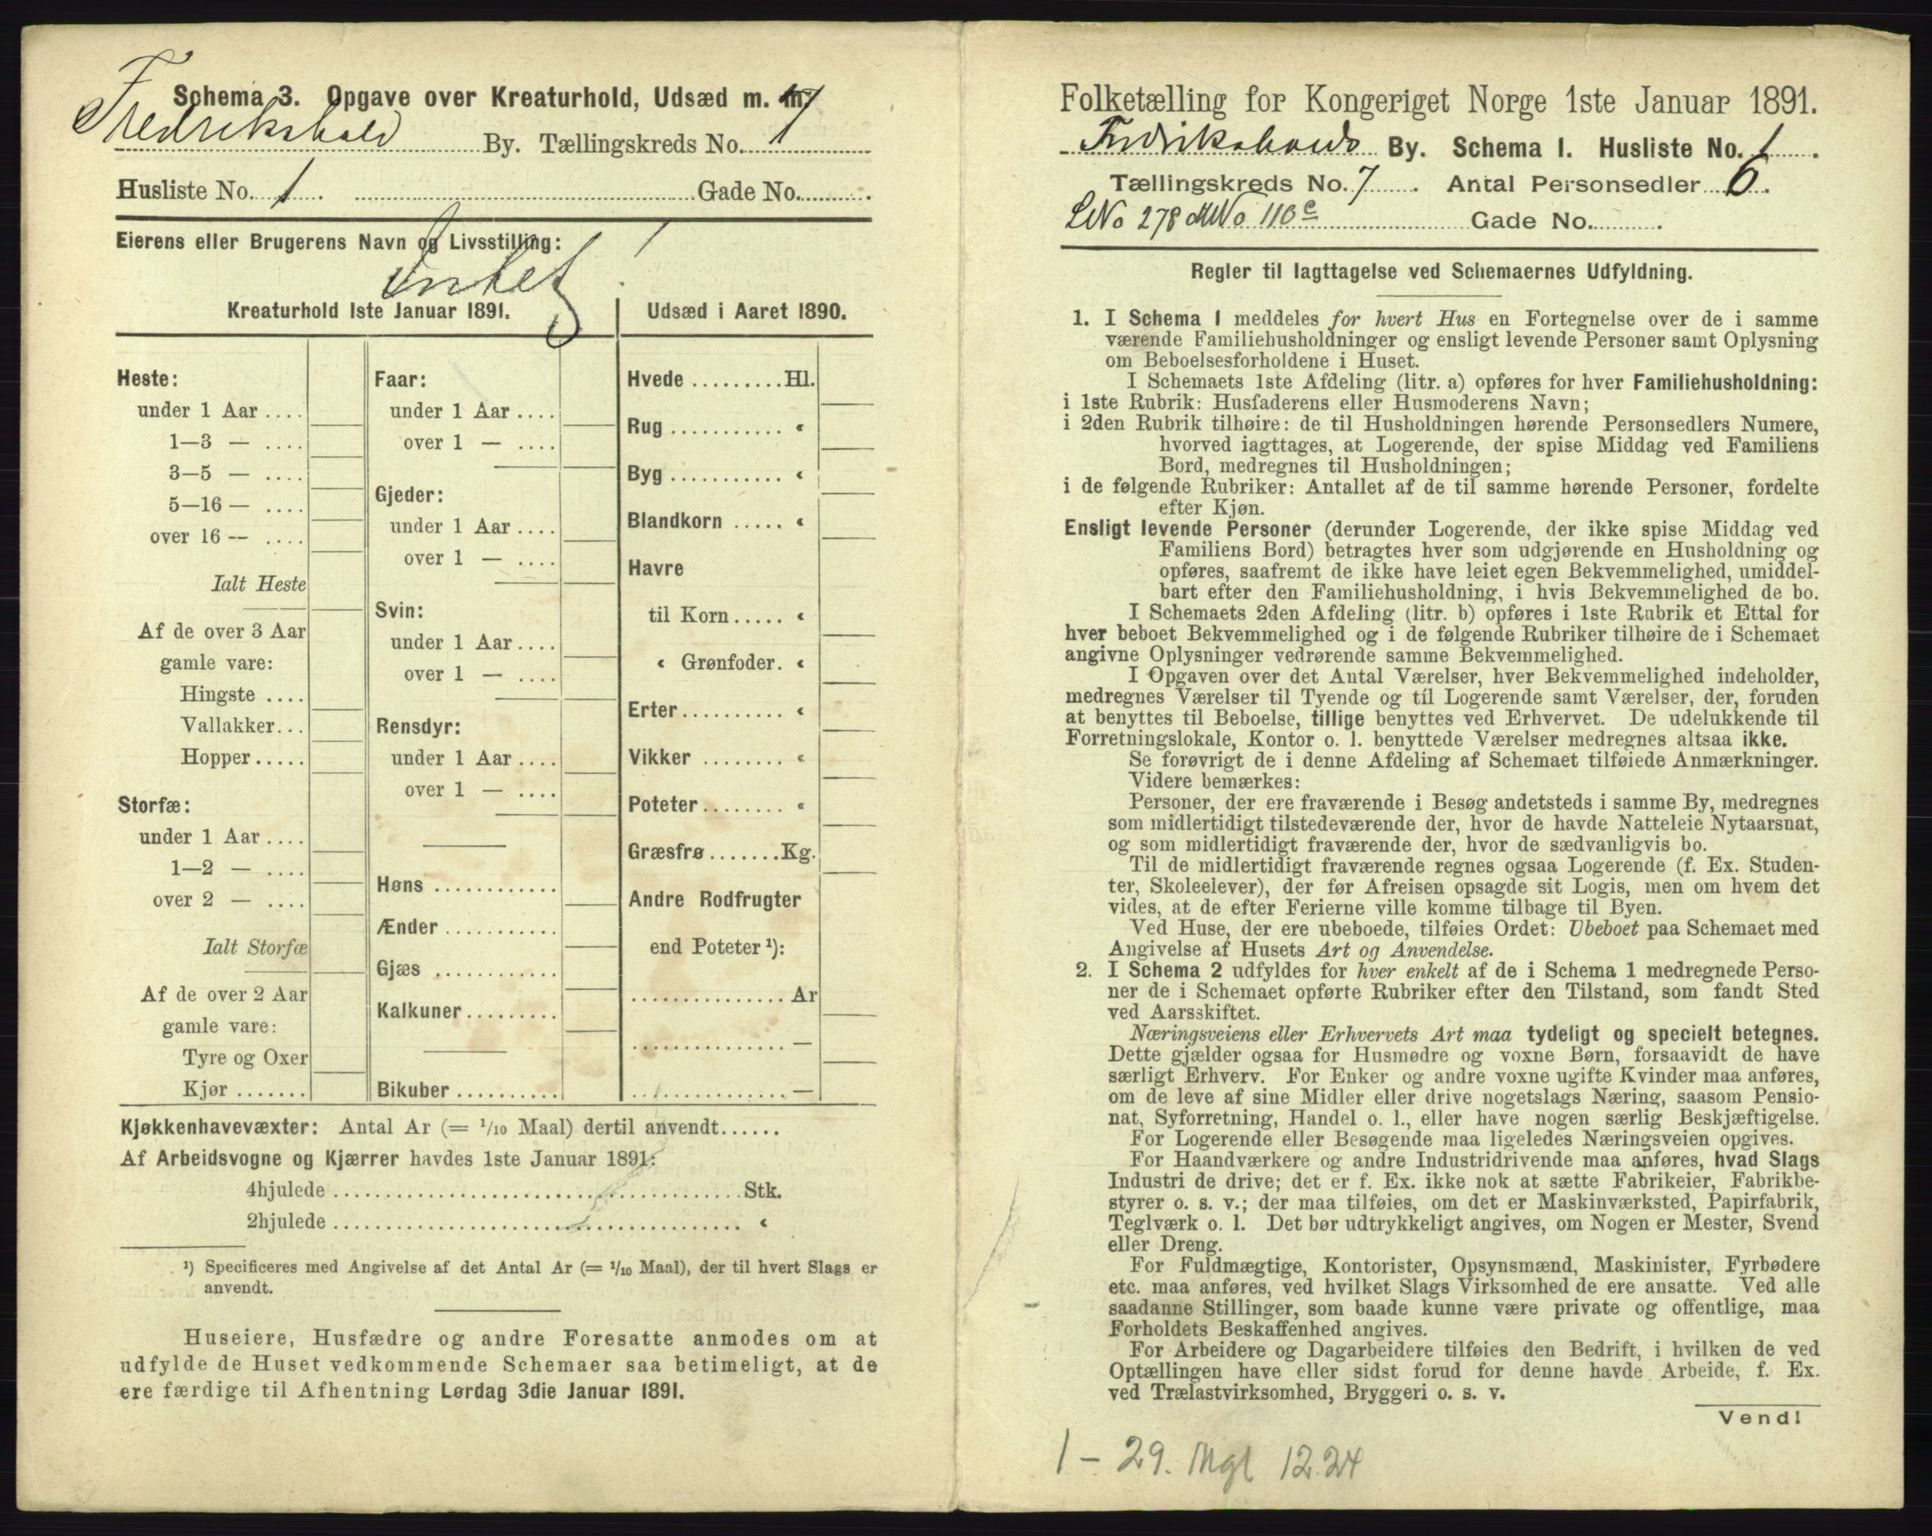 Schema 3. Opgave over Kreaturhold, Udsæd m. m.
Fredrikshald By. Tællingskreds No. 7
Husliste No. 1. Gade No.
Eierens eller Brugerens Navn og Livsstilling:
Intet!
Kreaturhold 1ste Januar 1891.
Heste:
under 1 Aar ....
1—3 — ....
3—5 — ....
5—16 — ....
over 16 — ....
Ialt Heste
Af de over 3 Aar
gamle vare:
Hingste ....
Vallakker...
Hopper.....
Storfæ:
under 1 Aar ....
1—2 — ....
over 2 — ....
Ialt Storfæ
Af de over 2 Aar
gamle vare:
Tyre og Oxer
Kjør .......
Faar:
under 1 Aar ....
over 1 — ....
Gjeder:
under 1 Aar ....
over 1 — ....
Svin:
under 1 Aar ....
over 1 — ....
Rensdyr:
under 1 Aar ....
over 1 — ....
Høns ............
Ænder ...........
Gjæs ............
Kalkuner.........
Bikuber ..........
Udsæd i Aaret 1890.
Hvede .........Hl.
Rug ........... «
Byg ........... «
Blandkorn ..... «
Havre
til Korn ..... «
« Grønfoder. «
Erter.......... «
Vikker ........ «
Poteter........ «
Græsfrø.......Kg.
Andre Rodfrugter
end Poteter ¹):
............... Ar
............... —
............... —
Kjøkkenhavevæxter: Antal Ar (= 1/10 Maal) dertil anvendt......
Af Arbeidsvogne og Kjærrer havdes 1ste Januar 1891:
4hjulede ........................................ Stk.
2hjulede ........................................ «
¹) Specificeres med Angivelse af det Antal Ar (= 1/10 Maal), der til hvert Slags er
anvendt.
Huseiere, Husfædre og andre Foresatte anmodes om at
udfylde de Huset vedkommende Schemaer saa betimeligt, at de
ere færdige til Afhentning Lørdag 3die Januar 1891.
Folketælling for Kongeriget Norge 1ste Januar 1891.
Fredrikshalds By. Schema I. Husliste No. 1.
Tællingskreds No. 7. Antal Personsedler 6.
LNo 278 MNo 110c Gade No.
Regler til Iagttagelse ved Schemaernes Udfyldning.
1. I Schema 1 meddeles for hvert Hus en Fortegnelse over de i samme
værende Familiehusholdninger og ensligt levende Personer samt Oplysning
om Beboelsesforholdene i Huset.
I Schemaets 1ste Afdeling (litr. a) opføres for hver Familiehusholdning:
i 1ste Rubrik: Husfaderens eller Husmoderens Navn;
i 2den Rubrik tilhøire: de til Husholdningen hørende Personsedlers Numere,
hvorved iagttages, at Logerende, der spise Middag ved Familiens
Bord, medregnes til Husholdningen;
i de følgende Rubriker: Antallet af de til samme hørende Personer, fordelte
efter Kjøn.
Ensligt levende Personer (derunder Logerende, der ikke spise Middag ved
Familiens Bord) betragtes hver som udgjørende en Husholdning og
opføres, saafremt de ikke have leiet egen Bekvemmelighed, umiddel-
bart efter den Familiehusholdning, i hvis Bekvemmelighed de bo.
I Schemaets 2den Afdeling (litr. b) opføres i 1ste Rubrik et Ettal for
hver beboet Bekvemmelighed og i de følgende Rubriker tilhøire de i Schemaet
angivne Oplysninger vedrørende samme Bekvemmelighed.
I Opgaven over det Antal Værelser, hver Bekvemmelighed indeholder,
medregnes Værelser til Tyende og til Logerende samt Værelser, der, foruden
at benyttes til Beboelse, tillige benyttes ved Erhvervet. De udelukkende til
Forretningslokale, Kontor o. l. benyttede Værelser medregnes altsaa ikke.
Se forøvrigt de i denne Afdeling af Schemaet tilføiede Anmærkninger.
Videre bemærkes:
Personer, der ere fraværende i Besøg andetsteds i samme By, medregnes
som midlertidigt tilstedeværende der, hvor de havde Natteleie Nytaarsnat,
og som midlertidigt fraværende der, hvor de sædvanligvis bo.
Til de midlertidigt fraværende regnes ogsaa Logerende (f. Ex. Studen-
ter, Skoleelever), der før Afreisen opsagde sit Logis, men om hvem det
vides, at de efter Ferierne ville komme tilbage til Byen.
Ved Huse, der ere ubeboede, tilføies Ordet: Ubeboet paa Schemaet med
Angivelse af Husets Art og Anvendelse.
2. I Schema 2 udfyldes for hver enkelt af de i Schema 1 medregnede Perso-
ner de i Schemaet opførte Rubriker efter den Tilstand, som fandt Sted
ved Aarsskiftet.
Næringsveiens eller Erhvervets Art maa tydeligt og specielt betegnes.
Dette gjælder ogsaa for Husmødre og voxne Børn, forsaavidt de have
særligt Erhverv. For Enker og andre voxne ugifte Kvinder maa anføres,
om de leve af sine Midler eller drive nogetslags Næring, saasom Pensio-
nat, Syforretning, Handel o. l., eller have nogen særlig Beskjæftigelse.
For Logerende eller Besøgende maa ligeledes Næringsveien opgives.
For Haandværkere og andre Industridrivende maa anføres, hvad Slags
Industri de drive; det er f. Ex. ikke nok at sætte Fabrikeier, Fabrikbe-
styrer o. s. v.; der maa tilføies, om det er Maskinværksted, Papirfabrik,
Teglværk o. l. Det bør udtrykkeligt angives, om Nogen er Mester, Svend
eller Dreng.
For Fuldmægtige, Kontorister, Opsynsmænd, Maskinister, Fyrbødere
etc. maa anføres, ved hvilket Slags Virksomhed de ere ansatte. Ved alle
saadanne Stillinger, som baade kunne være private og offentlige, maa
Forholdets Beskaffenhed angives.
For Arbeidere og Dagarbeidere tilføies den Bedrift, i hvilken de ved
Optællingen have eller sidst forud for denne havde Arbeide, f. Ex.
ved Trælastvirksomhed, Bryggeri o. s. v.
Vend!
1 - 29. Mgl 12.24